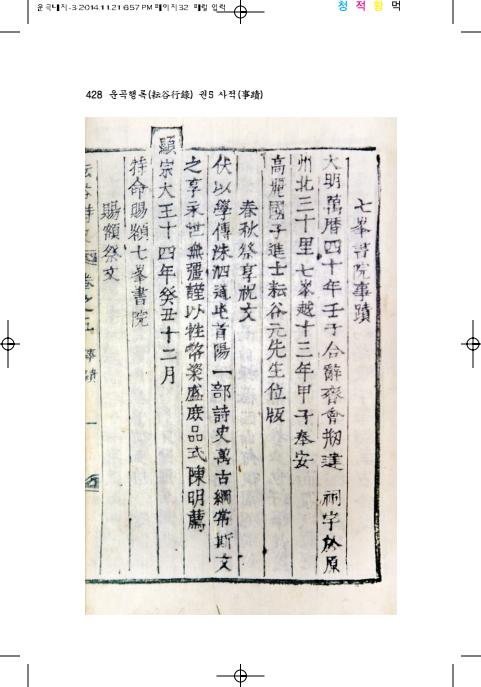 운곡내지-3 2014.11.21 6:57 PM 페이지32 매킬 입력
청 적 황 먹
428 운곡행록(耘谷行錄) 권5 사적(事蹟)
七峯書院事蹟
大明萬曆四十年壬子合辭齊會刱建 祠宇於原
州北三十里七峯越十三年甲子奉安
高麗國子進士耘谷元先生位版
春秋祭享祝文
伏以學傳洙泗道屹首陽一部詩史萬古綱常斯文
之享永世無疆謹以牲幣粢盛庶品式陳明薦
顯宗大王十四年癸丑十二月
特命賜額七峯書院
賜額祭文
耘谷詩史 卷之五 事蹟 一